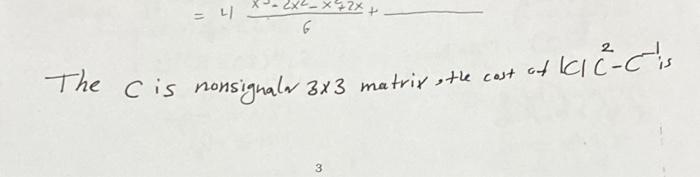 = 4! x³-2x²-x²+2x / 6 +
The C is nonsignalr 3x3 matrix, the cost of |C| C²-C⁻¹ is
3